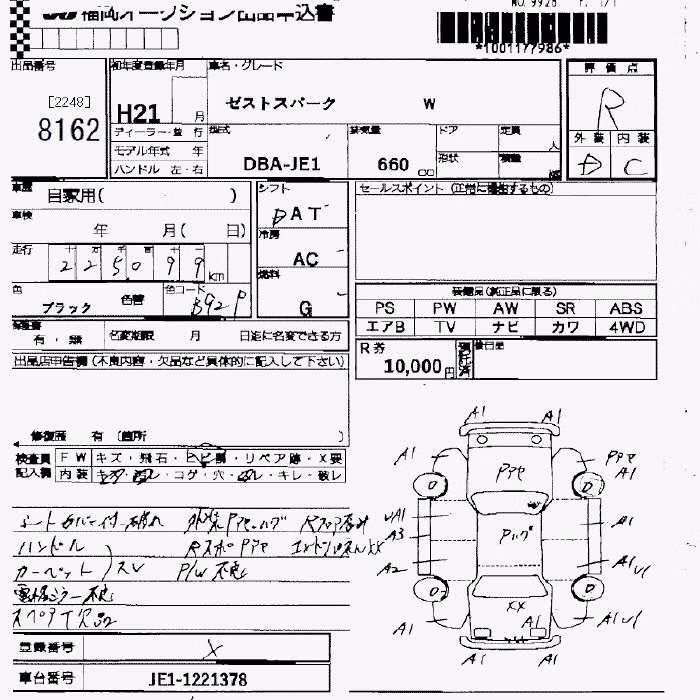 福岡オークション出品申込書
*1001177986*
出品番号
[2248]
8162
初年度登録年月
H21
月
車名・グレード
ゼストスパーク W
評価点
R
外装 内装
D C
ディーラー・並行
モデル年式 年
ハンドル 左・右
型式
DBA-JE1
排気量
660 cc
ドア
定員
人
形状
積量
kg
車歴
自家用( )
車検
年 月( 日)
走行
225099 km
色
ブラック
色替
色コード
B92P
シフト
DAT
冷房
AC
燃料
G
セールスポイント(正常に機能するもの)
装備品(純正品に限る)
PS PW AW SR ABS
エアB TV ナビ カワ 4WD
有・無
名変期限 月 日迄に名変できる方
R券
10,000円
後日品
出品店申告欄(不良内容・欠品など具体的に記入して下さい)
修復歴 有 〔箇所 〕
検査員記入欄
FW キズ・飛石・ヒビ割・リペア跡・X要
内装 キズ・汚レ・コゲ・穴・スレ・キレ・破レ
シートカバー付
ハンドル
カーペット スレ P/W不良
電格ミラー不良
スペアT欠品
A1 A1
A1
A1
A1
UA1
A3
A2
A1
A1
XX
A1
A1
A1 A1
登録番号
X
車台番号
JE1-1221378